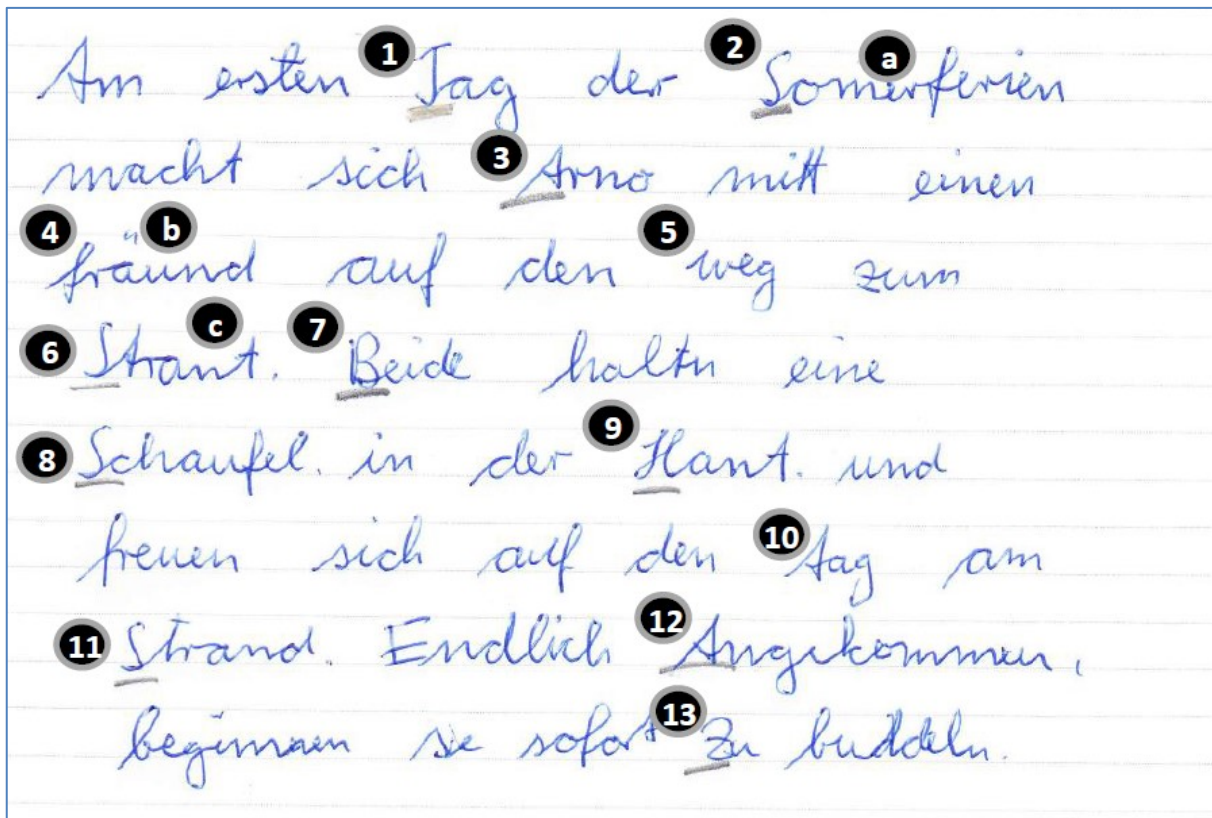 Am ersten 1 Tag der 2 Somerferien a
macht sich 3 Arno mitt einen
4 fräund b auf den 5 weg zum
6 Strant. c 7 Beide haltn eine
8 Schaufel. in der 9 Hant. und
freuen sich auf den 10 tag am
11 Strand. Endlich 12 Angekommen,
beginnen sie sofort 13 Zu buddeln.